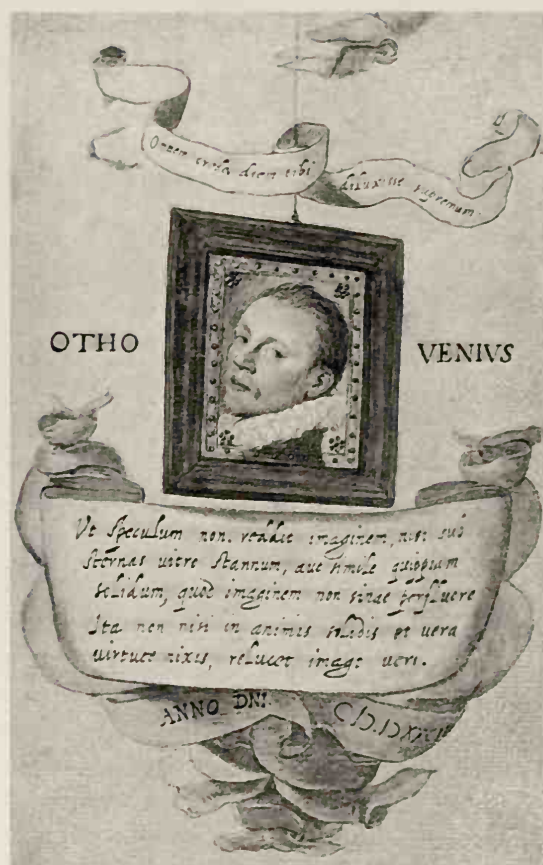 Omnem crede diem tibi
diluxisse supremum.
OTHO VENIVS
Ut speculum non reddit imaginem, nisi sub
sternas vitro stannum, aut simile quippiam
solidum, quod imaginem non sinat perfluere
Ita non nisi in animis solidis et vera
virtute nixis, relucet imago veri.
ANNO DNI.